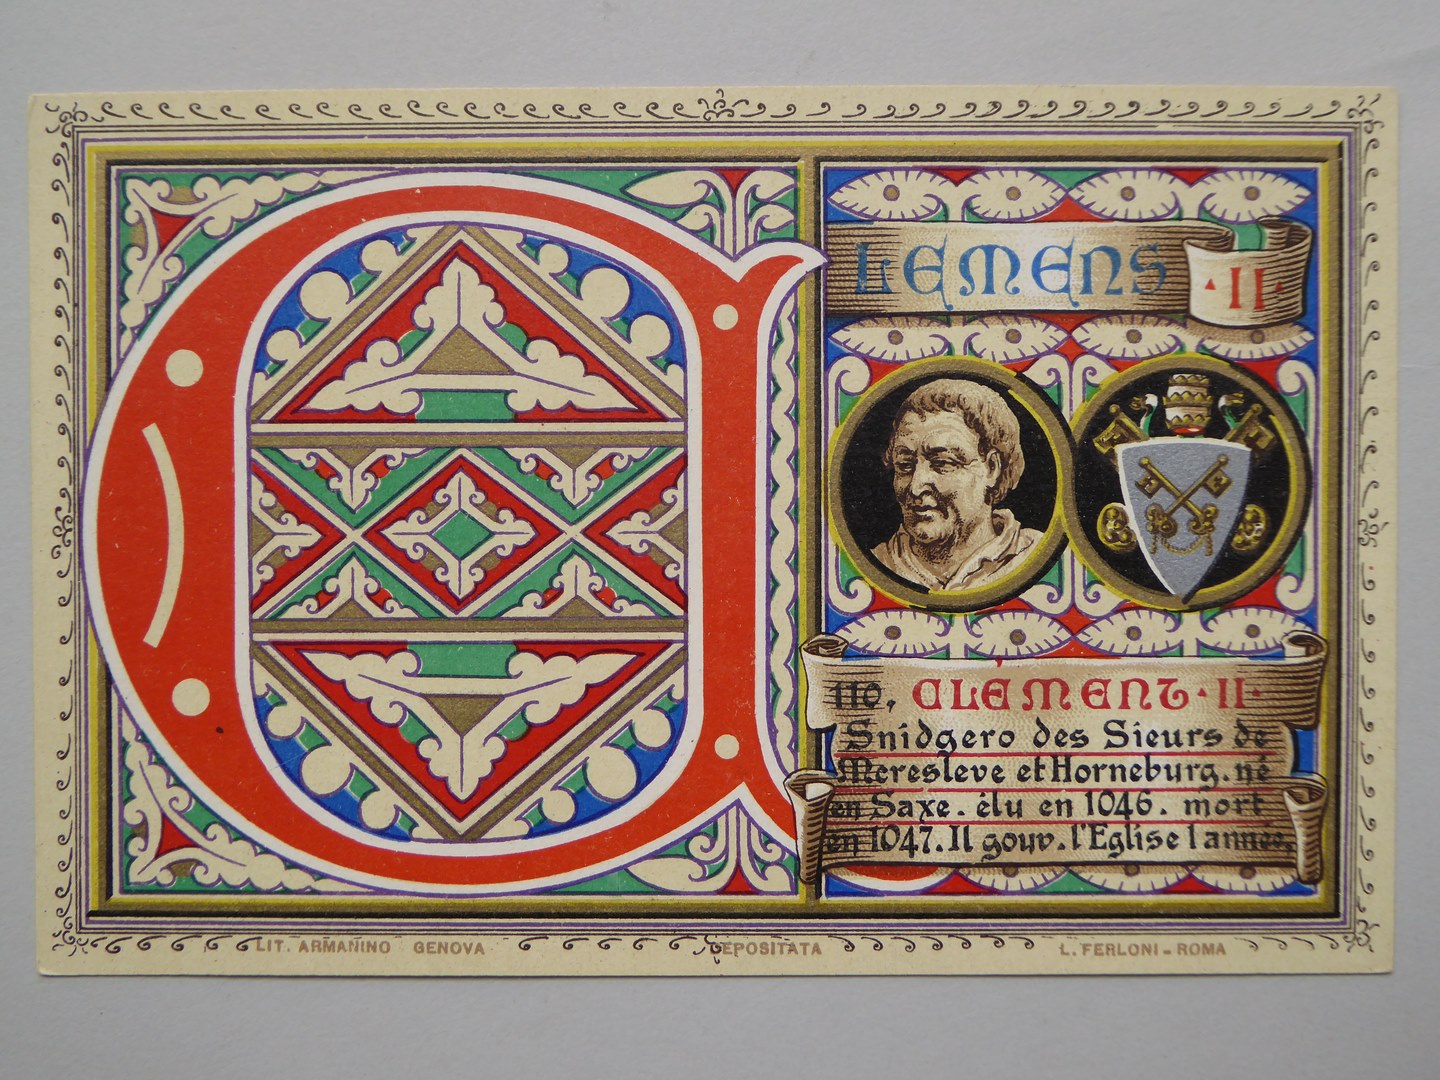 CLEMENS II
110, CLÉMENT · II ·
Snidgero des Sieurs de
Meresleve et Horneburg. né
en Saxe. élu en 1046. mort
en 1047. Il gouv. l'Eglise 1 année.
LIT. ARMANINO GENOVA DEPOSITATA L. FERLONI - ROMA